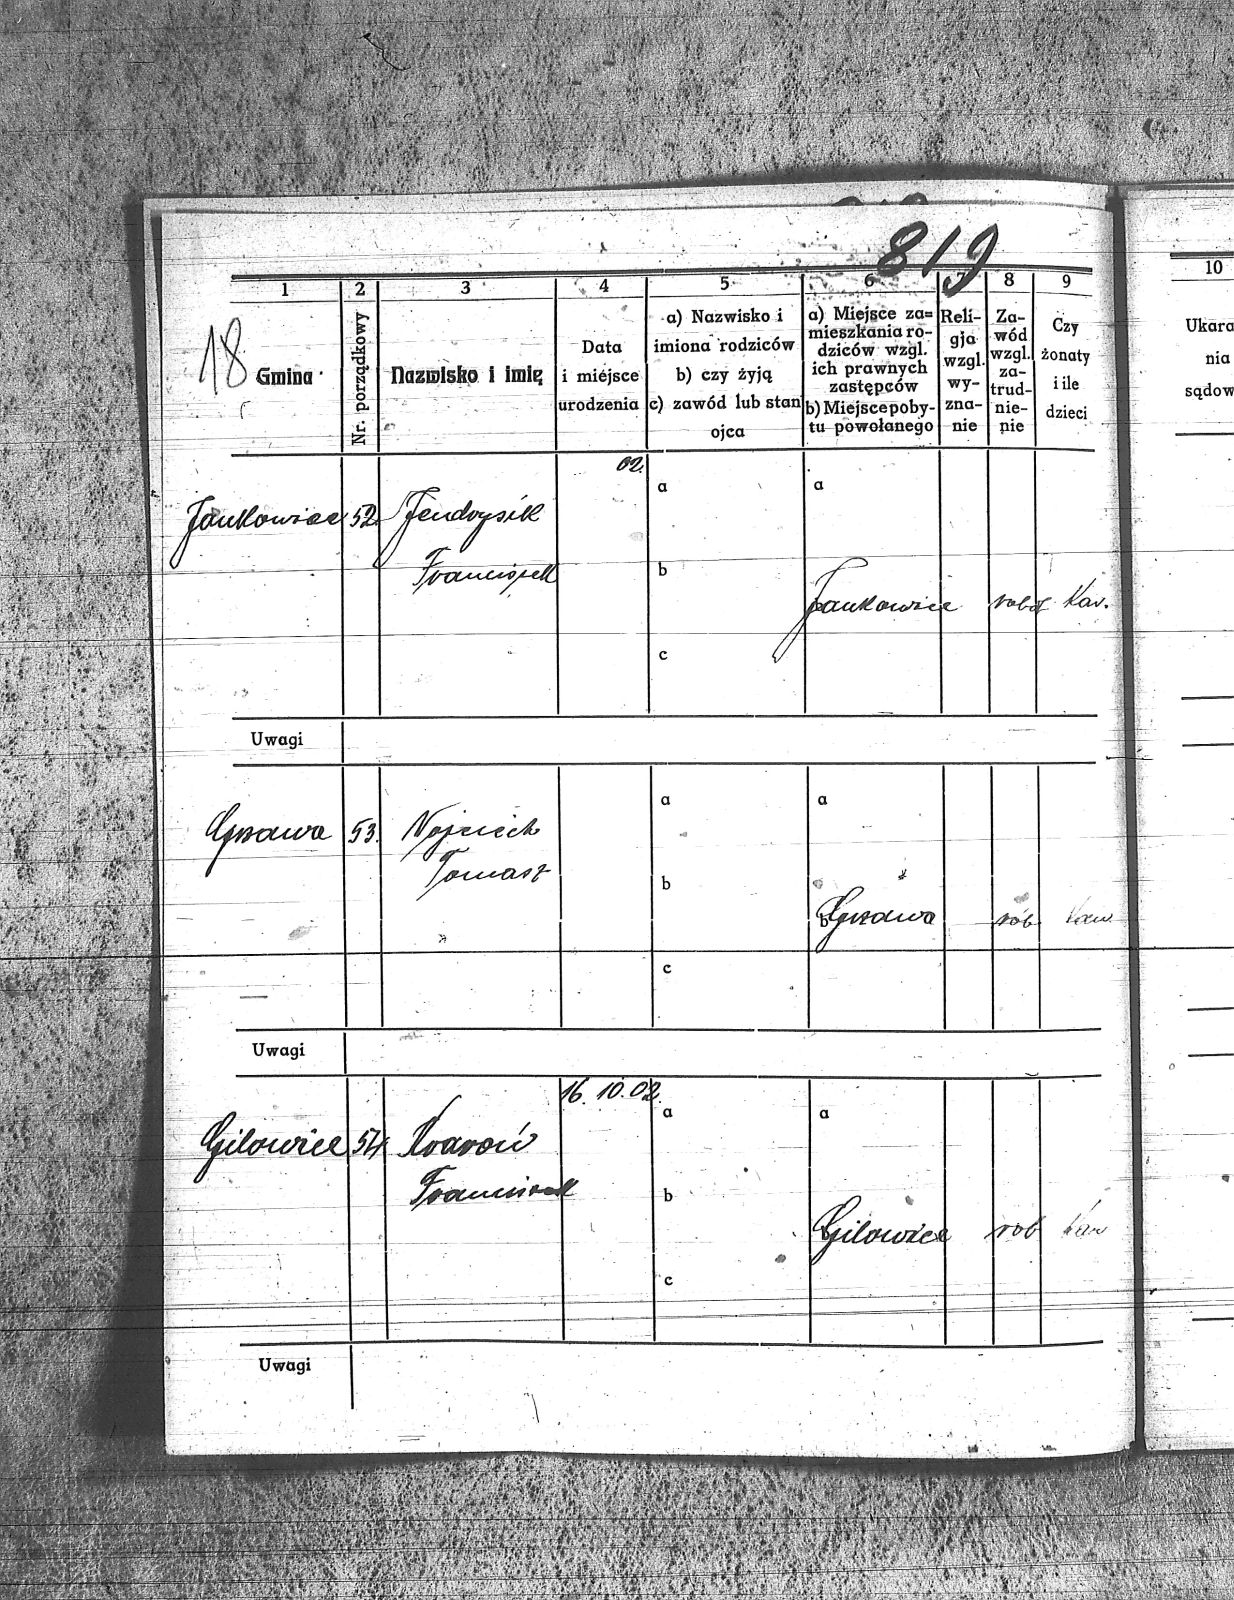 819
18
1 2 3 4 5 6 7 8 9 10
Gmina
Nr. porządkowy
Nazwisko i imię
Data
i miejsce
urodzenia
a) Nazwisko i
imiona rodziców
b) czy żyją
c) zawód lub stan
ojca
a) Miejsce za=
mieszkania ro-
dziców wzgl.
ich prawnych
zastępców
b) Miejsce poby-
tu powołanego
Reli-
gja
wzgl.
wy-
zna-
nie
Za-
wód
wzgl.
za-
trud-
nie-
nie
Czy
żonaty
i ile
dzieci
Ukara
nia
sądow
02.
a a
Jankowice 52. Jendrysik
Franciszek
b
Jankowice rob Kaw.
c
Uwagi
a a
53. Wojciech
Tomasz
b
b rob Kaw
c
Uwagi
16.10.02.
a a
Gilowice 54. Kraroń
Franciszek
b
Gilowice rob Kaw
c
Uwagi